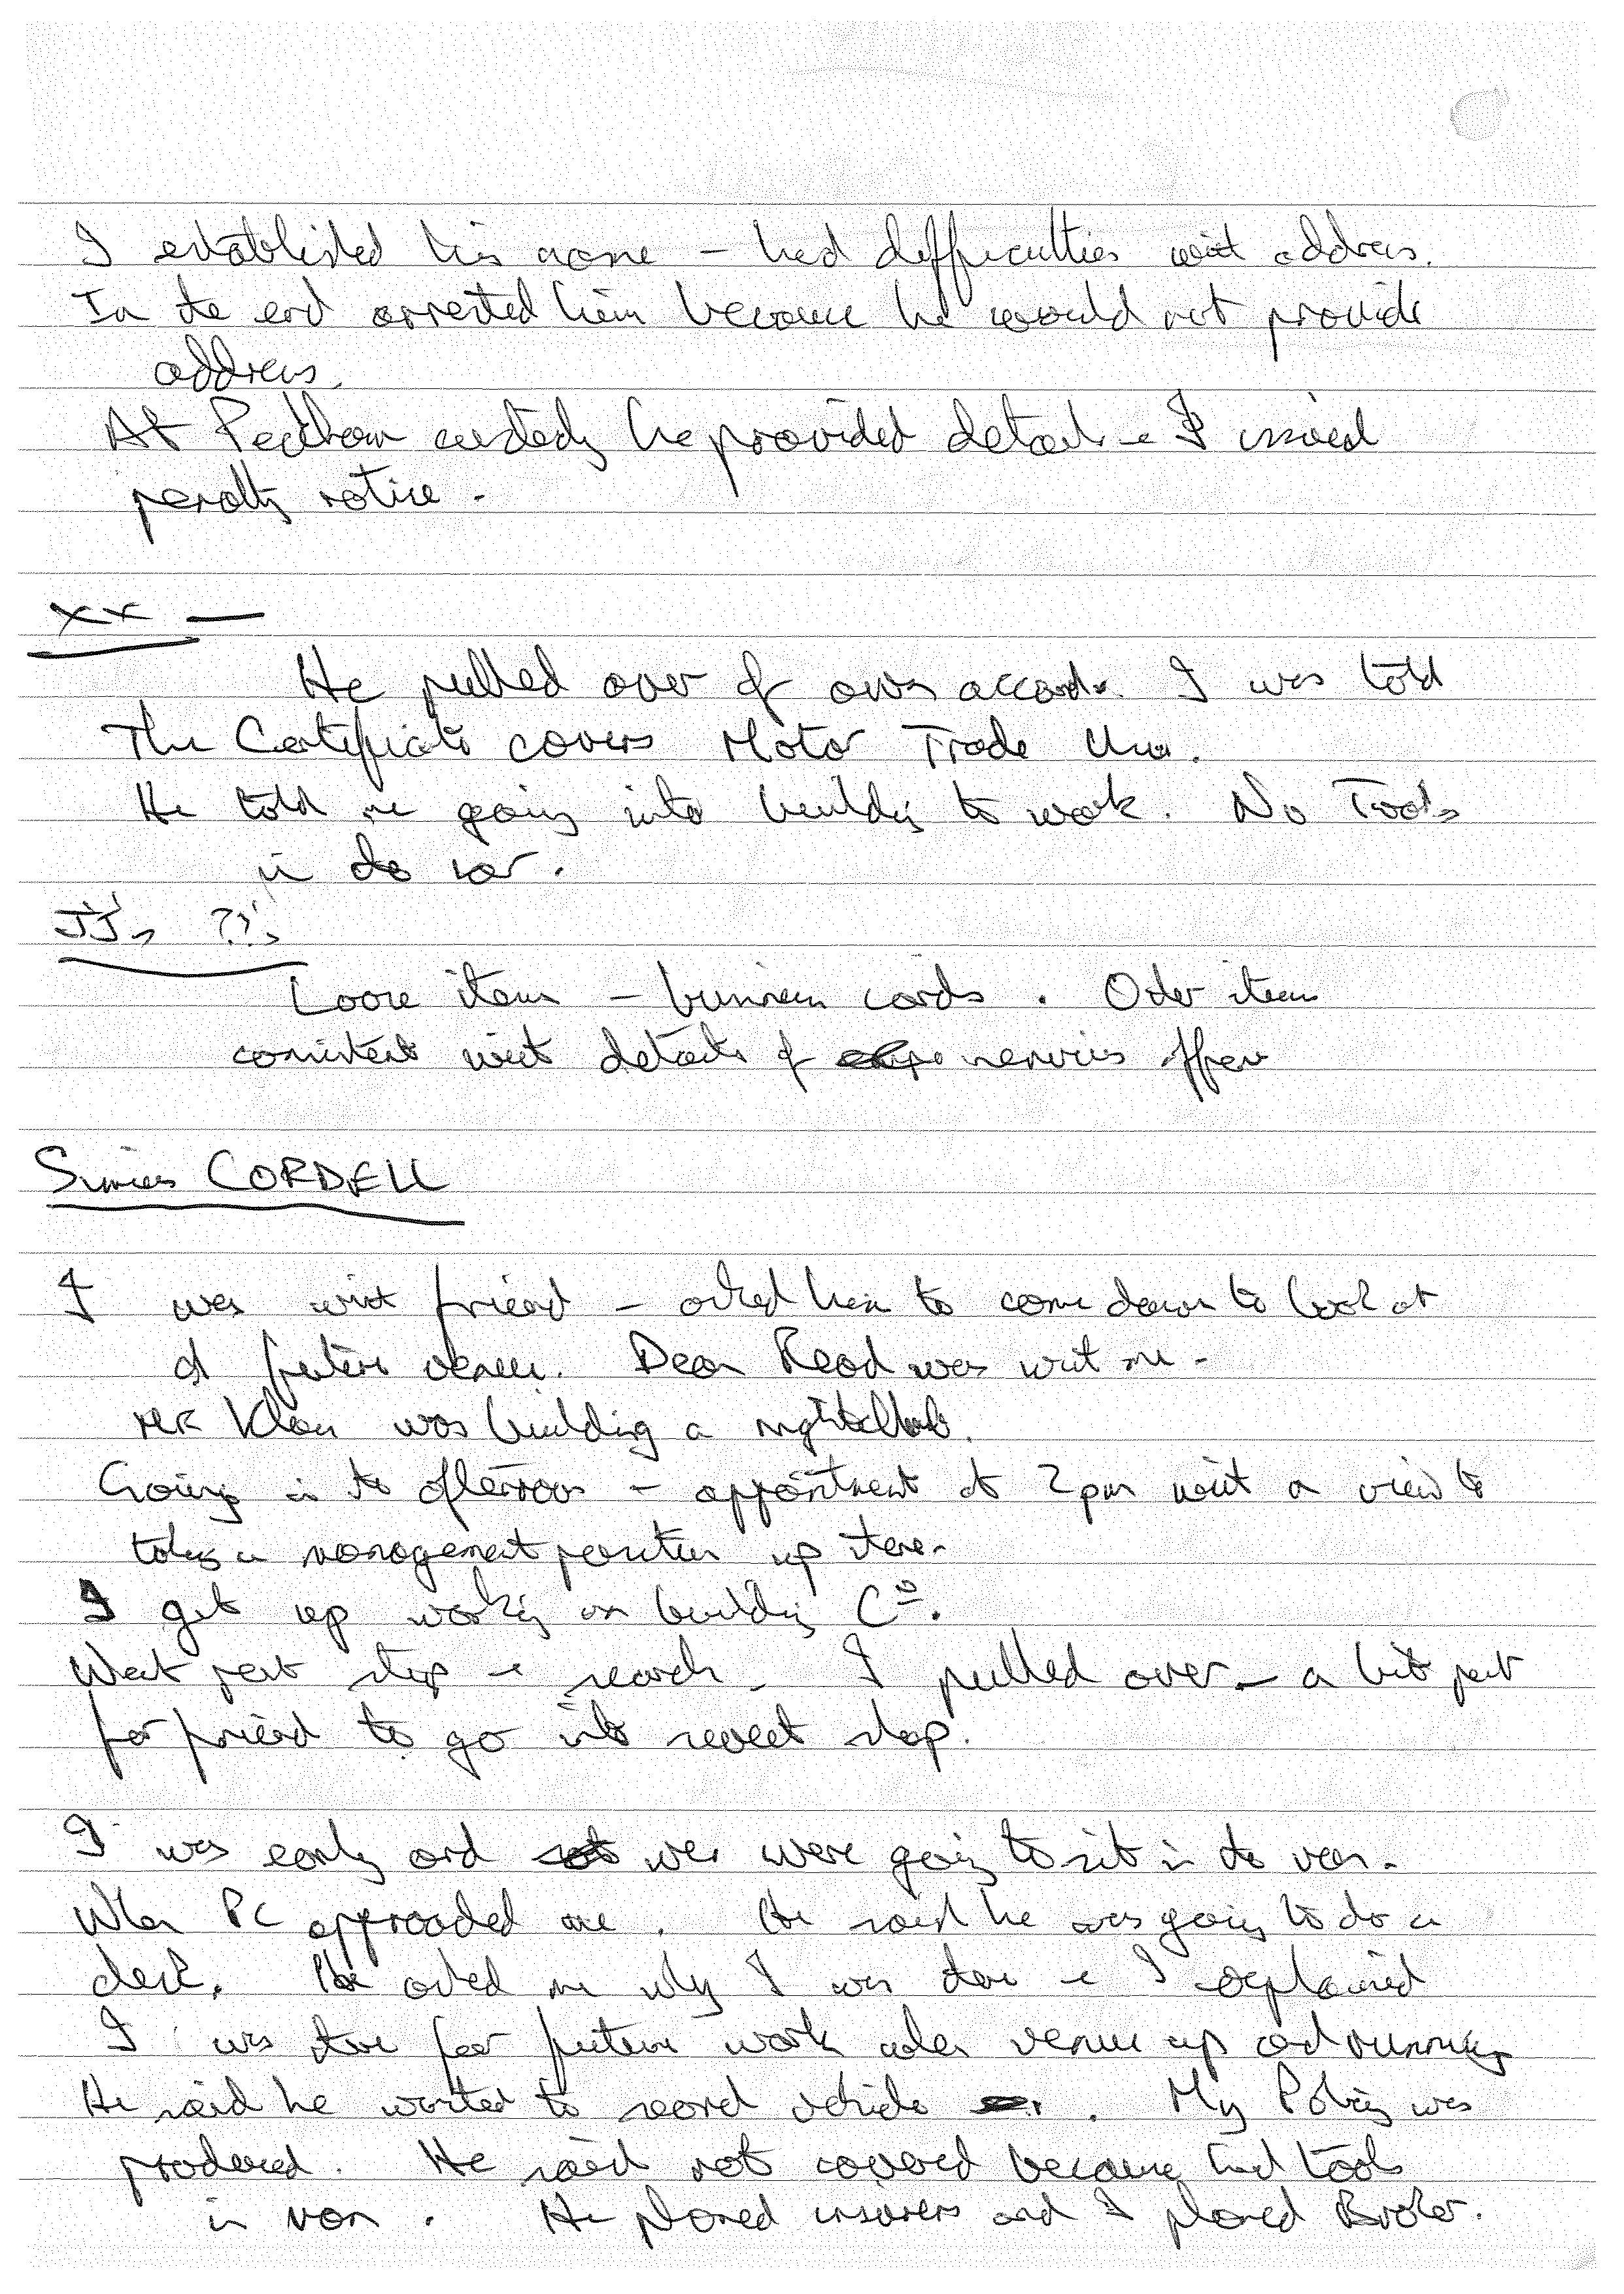 I established his name - had difficulties with address.
In the end arrested him because he would not provide
address.
At Peckham custody he provided details & I issued
penalty notice.
XX —
He pulled over of own accord. I was told
The Certificate covers Motor Trade Use.
He told me going into building to work. No Tools
in the car.
JJ's ??'s
Loose items - business cards. Other items
consistent with details of services offer
CORDELL
I was with friend - asked him to come down to look at
at future venue. Dean Read was with me.
MR Khan was building a nightclub.
Going in the afternoon - appointment at 2pm with a view to
taking a management position up there.
I get up working on building Co.
Went past stop & search. I pulled over - a bit past
for friend to go into sweet shop.
I was early and we were going to sit in the van.
When PC approached me. He said he was going to do a
check. He asked me why I was there & I explained
I was there for future work when venue up and running
He said he wanted to search vehicle. My Policy was
produced. He said not covered because had tools
in van. He phoned insurers and I phoned Broker.